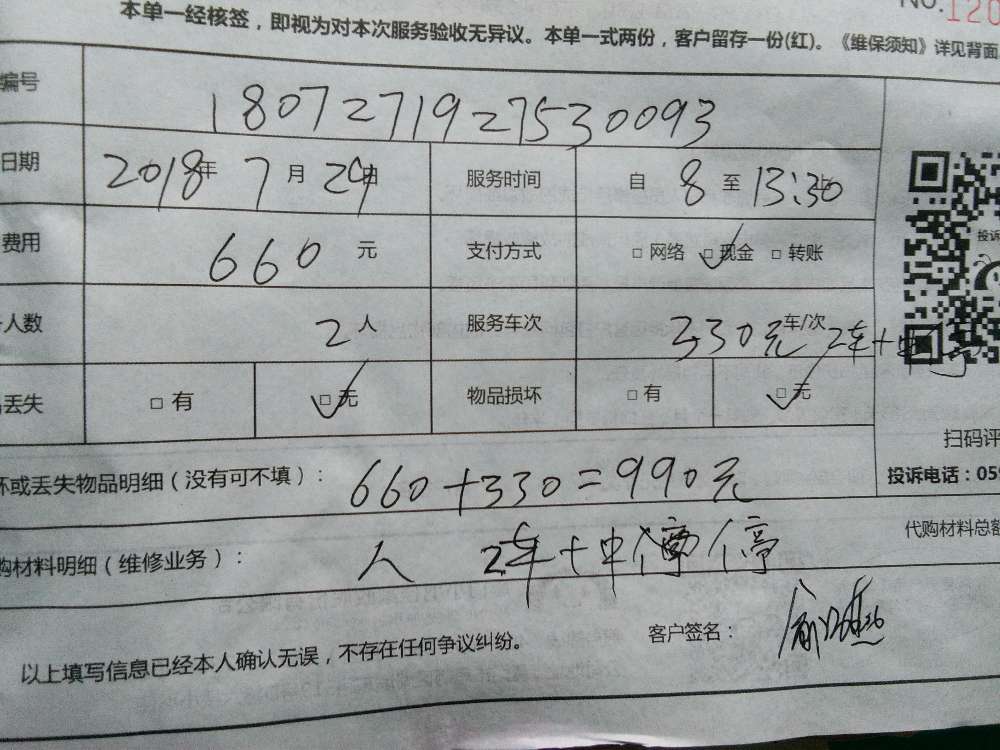 NO.120
本单一经核签，即视为对本次服务验收无异议。本单一式两份，客户留存一份(红)。《维保须知》详见背面
编号 1807271927530093
日期 2018年7月 日 服务时间 自 8 至 13:30
费用 660 元 支付方式 □ 网络 □ 现金 □ 转账
投诉
人数 2 人 服务车次 330元 车/次 2车+中
丢失 □ 有 □ 无 物品损坏 □ 有 □ 无
扫码评
坏或丢失物品明细（没有可不填）： 660+330=990元
投诉电话：059
代购材料总额
购材料明细（维修业务）： 人 2车+中 停
客户签名：
以上填写信息已经本人确认无误，不存在任何争议纠纷。